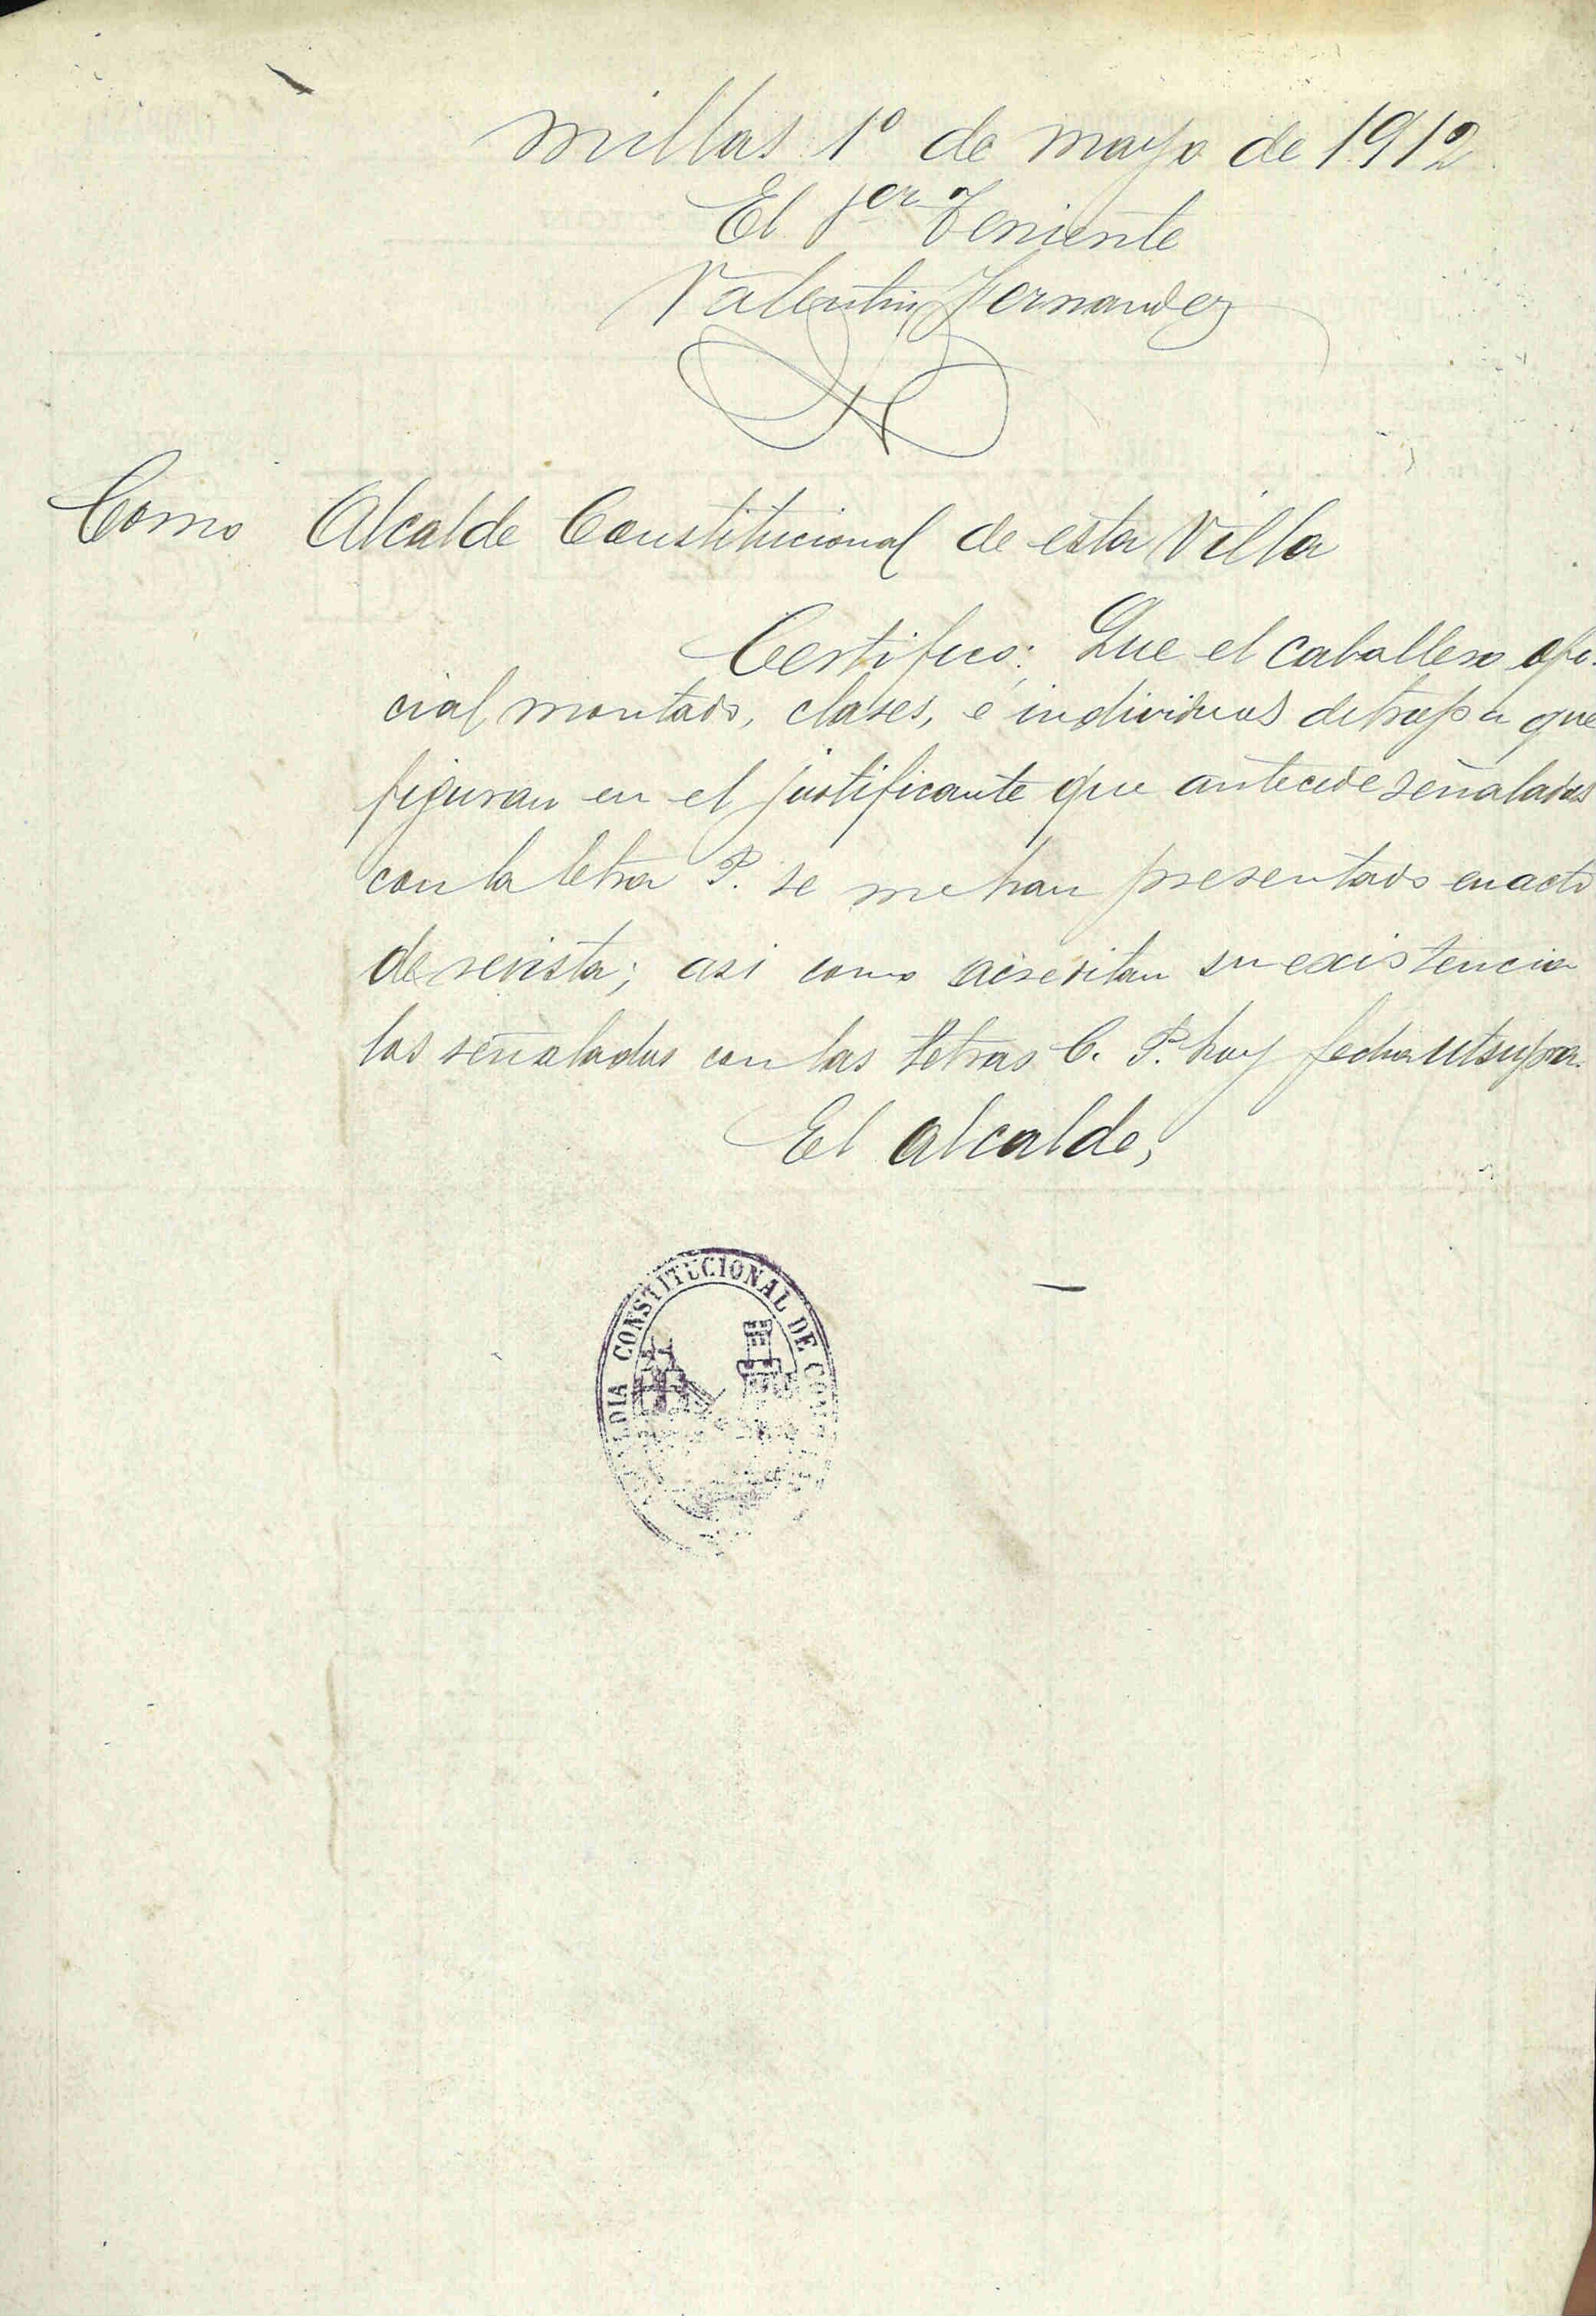 millas 1º de mayo de 1912
El 1er Teniente
Valentin Fernandez
Como Alcalde Constitucional de esta Villa
Certifico: Que el caballero ofi-
cial montado, clases, é individuos de tropa que
figuran en el justificante que antecede señalados
con la letra P. se me han presentado en acto
de revista; asi como acreditan su existencia
los señalados con las letras C. P. hoy fecha utsupra.
El Alcalde,
CONSTITUCIONAL DE